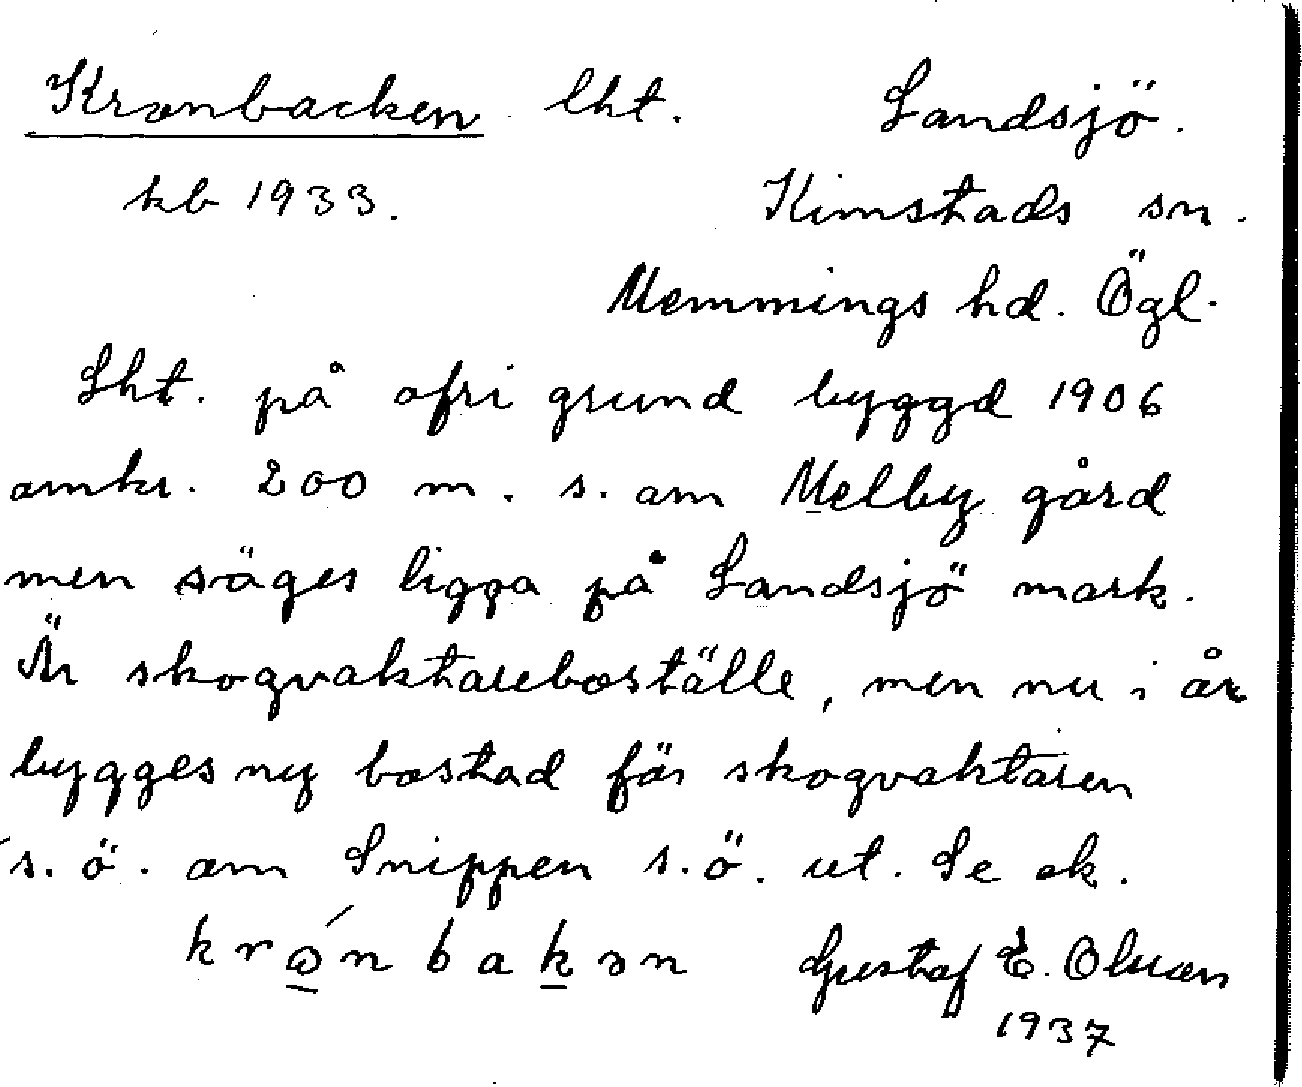 Kronbacken lht. Landsjö.
kb 1933. Kimstads sn.
Memmings hd. Ögl.
Lht. på ofri grund byggd 1906
omkr. 200 m. s. om Melby gård
men säges ligga på Landsjö mark.
Är skogvaktareboställe, men nu i år
bygges ny bostad för skogvaktaren
s. ö. om Snippen s. ö. ut. Se ek.
Gustaf E. Olsson
1937